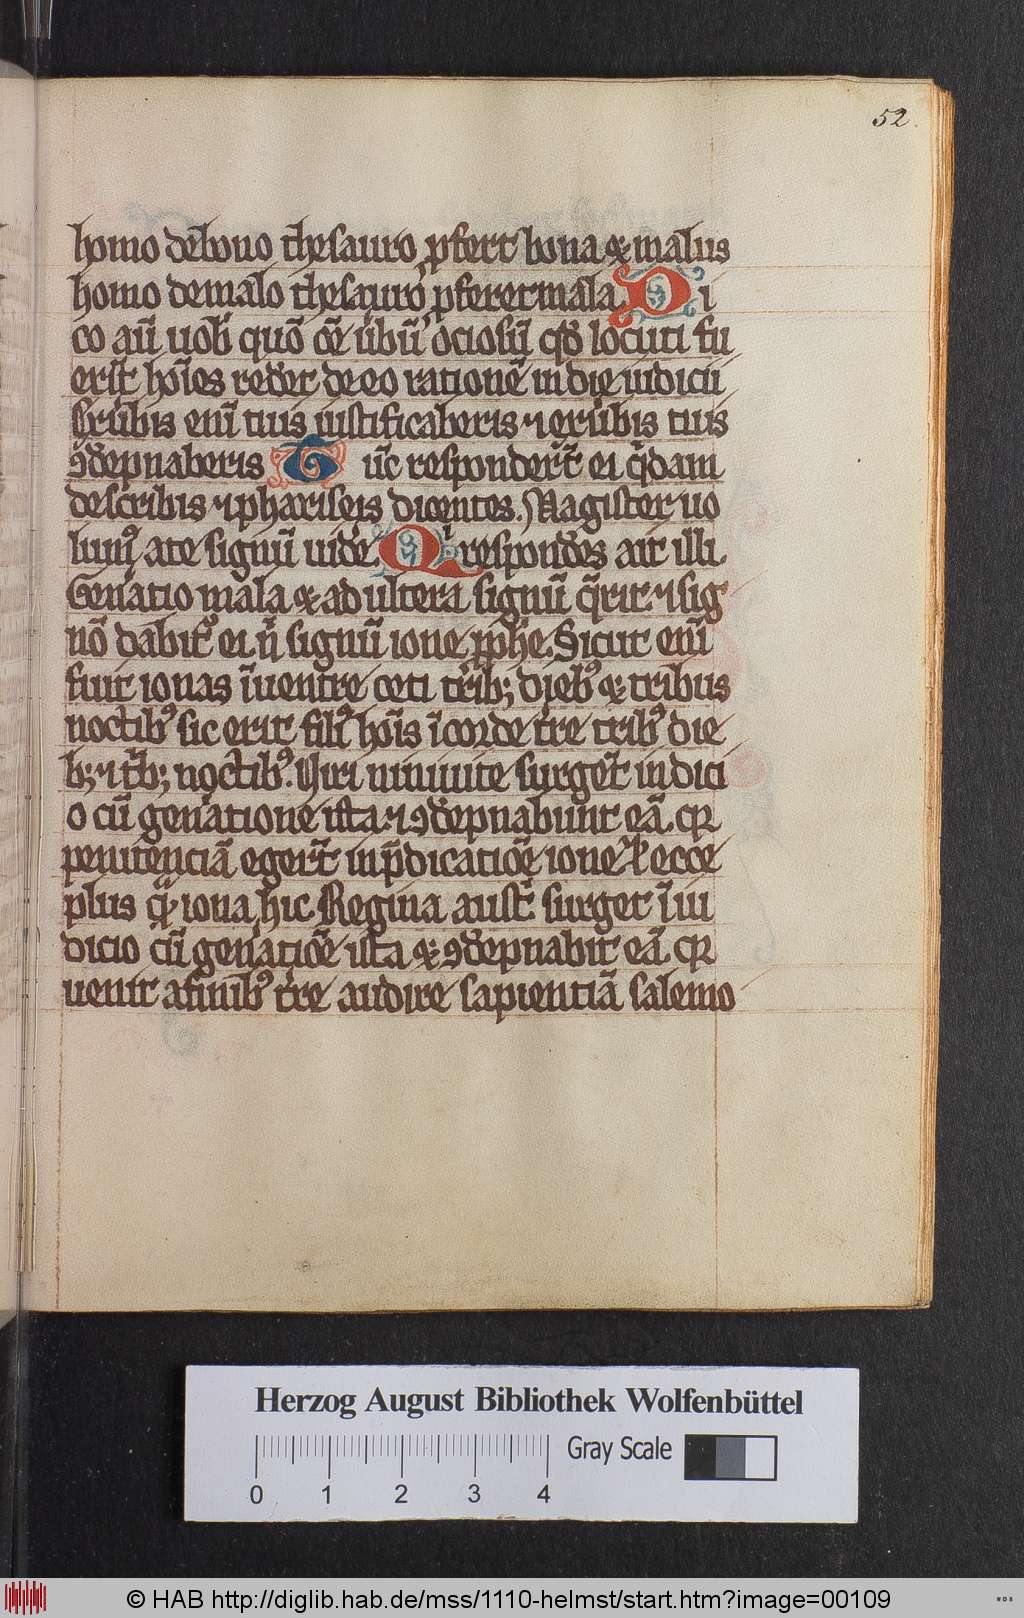 52.
homo de bono thesauro ꝓfert bona & malus
homo demalo thesauro ꝓferet mala. Di
co aūt uob' quō ōe ūbū ociosū qđ locuti fu
erīt hoīes redd'et de eo rationē in die iudicii
Ex ūbis enī tuis iustificaberis ⁊ ex ūbis tuis
ꝯdēpnaberis Tūc responder̄t ei q̄dam
de scribis ⁊ phariseis dicentes. Magister uo
lumꝰ ate signū uide'. Qi respondēs ait illi.
Gen'atio mala & adultera signū q̄rit. ⁊ sig
nō dabit' ei n̄ signū ione ꝓphe. Sicut enī
fuit ionas ī uentre ceti trib; diebꝰ & tribus
noctibꝰ sic erit filiꝰ hoīs ī corde tr̄e tribꝰ die
b; ⁊ tb; noctibꝰ. Uiri niniuite surgēt in iudici
o cū gen'atione ista. ⁊ ꝯdēpnabunt eā. qꝛ
penitenciā eger̄t in p̄dicatiōe ione. Et ecce
plus q̄ iona hic. Regina aust' surget ī iu
dicio cū gen'atiōe ista & ꝯdēpnabit eā. qꝛ
uenit afinibꝰ tr̄e audire sapientiā salemo
Herzog August Bibliothek Wolfenbüttel
Gray Scale
0 1 2 3 4
© HAB http://diglib.hab.de/mss/1110-helmst/start.htm?image=00109